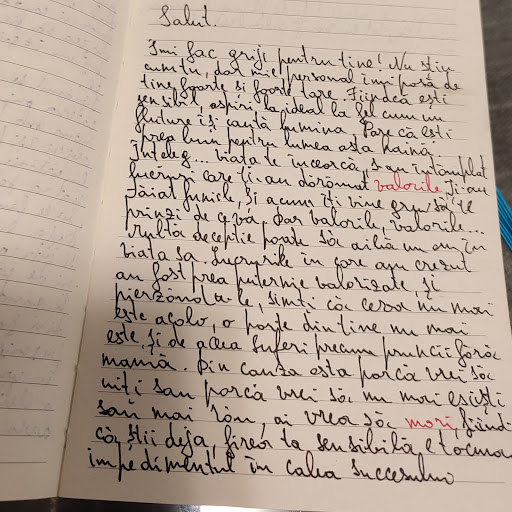 Salut.
Îmi fac griji pentru tine! Nu știu
cum tu, dar mie personal îmi pasă de
tine foarte și foarte tare. Fiindcă ești
sensibil, aspiri la ideal la fel cum un
fluture își caută lumina. Pare că ești
prea bun pentru lumea asta haină.
Înțeleg... viața te încearcă, s-au întâmplat
lucruri care ți-au dărâmat valorile, ți-au
tăiat funiile, și acum îți vine greu să te
prinzi de ceva. Dar valorile, valorile...
multă decepție poate să aibă un om în
viața sa. Lucrurile în care am crezut
au fost prea puternic valorizate, și
pierzându-le, simți că ceva nu mai
este acolo, o parte din tine nu mai
este, și de aceea suferi precum pruncii fără
mamă. Din cauza asta parcă vrei să
uiți sau parcă vrei să nu mai exiști
sau mai rău, ai vrea să mori, fiindcă
că știi deja, firea ta sensibilă, e tocmai
impedimentul în calea succesului